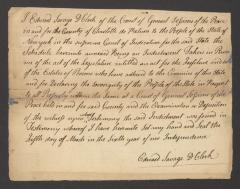 I Edward Savage D Clerk of the Court of General Sessions of the Peace
in and for the County of Charlotte do Return to the People of the State of
New York in the supreme Court of Judicature for the said State the
Schedule hereunto annexed Being an Indictment Taken in Persu
ance of the act of the Legislature entitled an act for the forfeiture and sale
of the Estates of Persons who have adhered to the Enemies of this State
and for declaring the Sovereignty of the People of the State in Respect
to all Property within the same at a Court of General Sessions of the
Peace held in and for said County and the Examination or Deposition
of the witness upon Testimony the said Indictment was found in
Testimony whereof I have hereunto set my hand and Seal the
fifth day of March in the Sixth year of our Independence
Edward Savage D Clerk